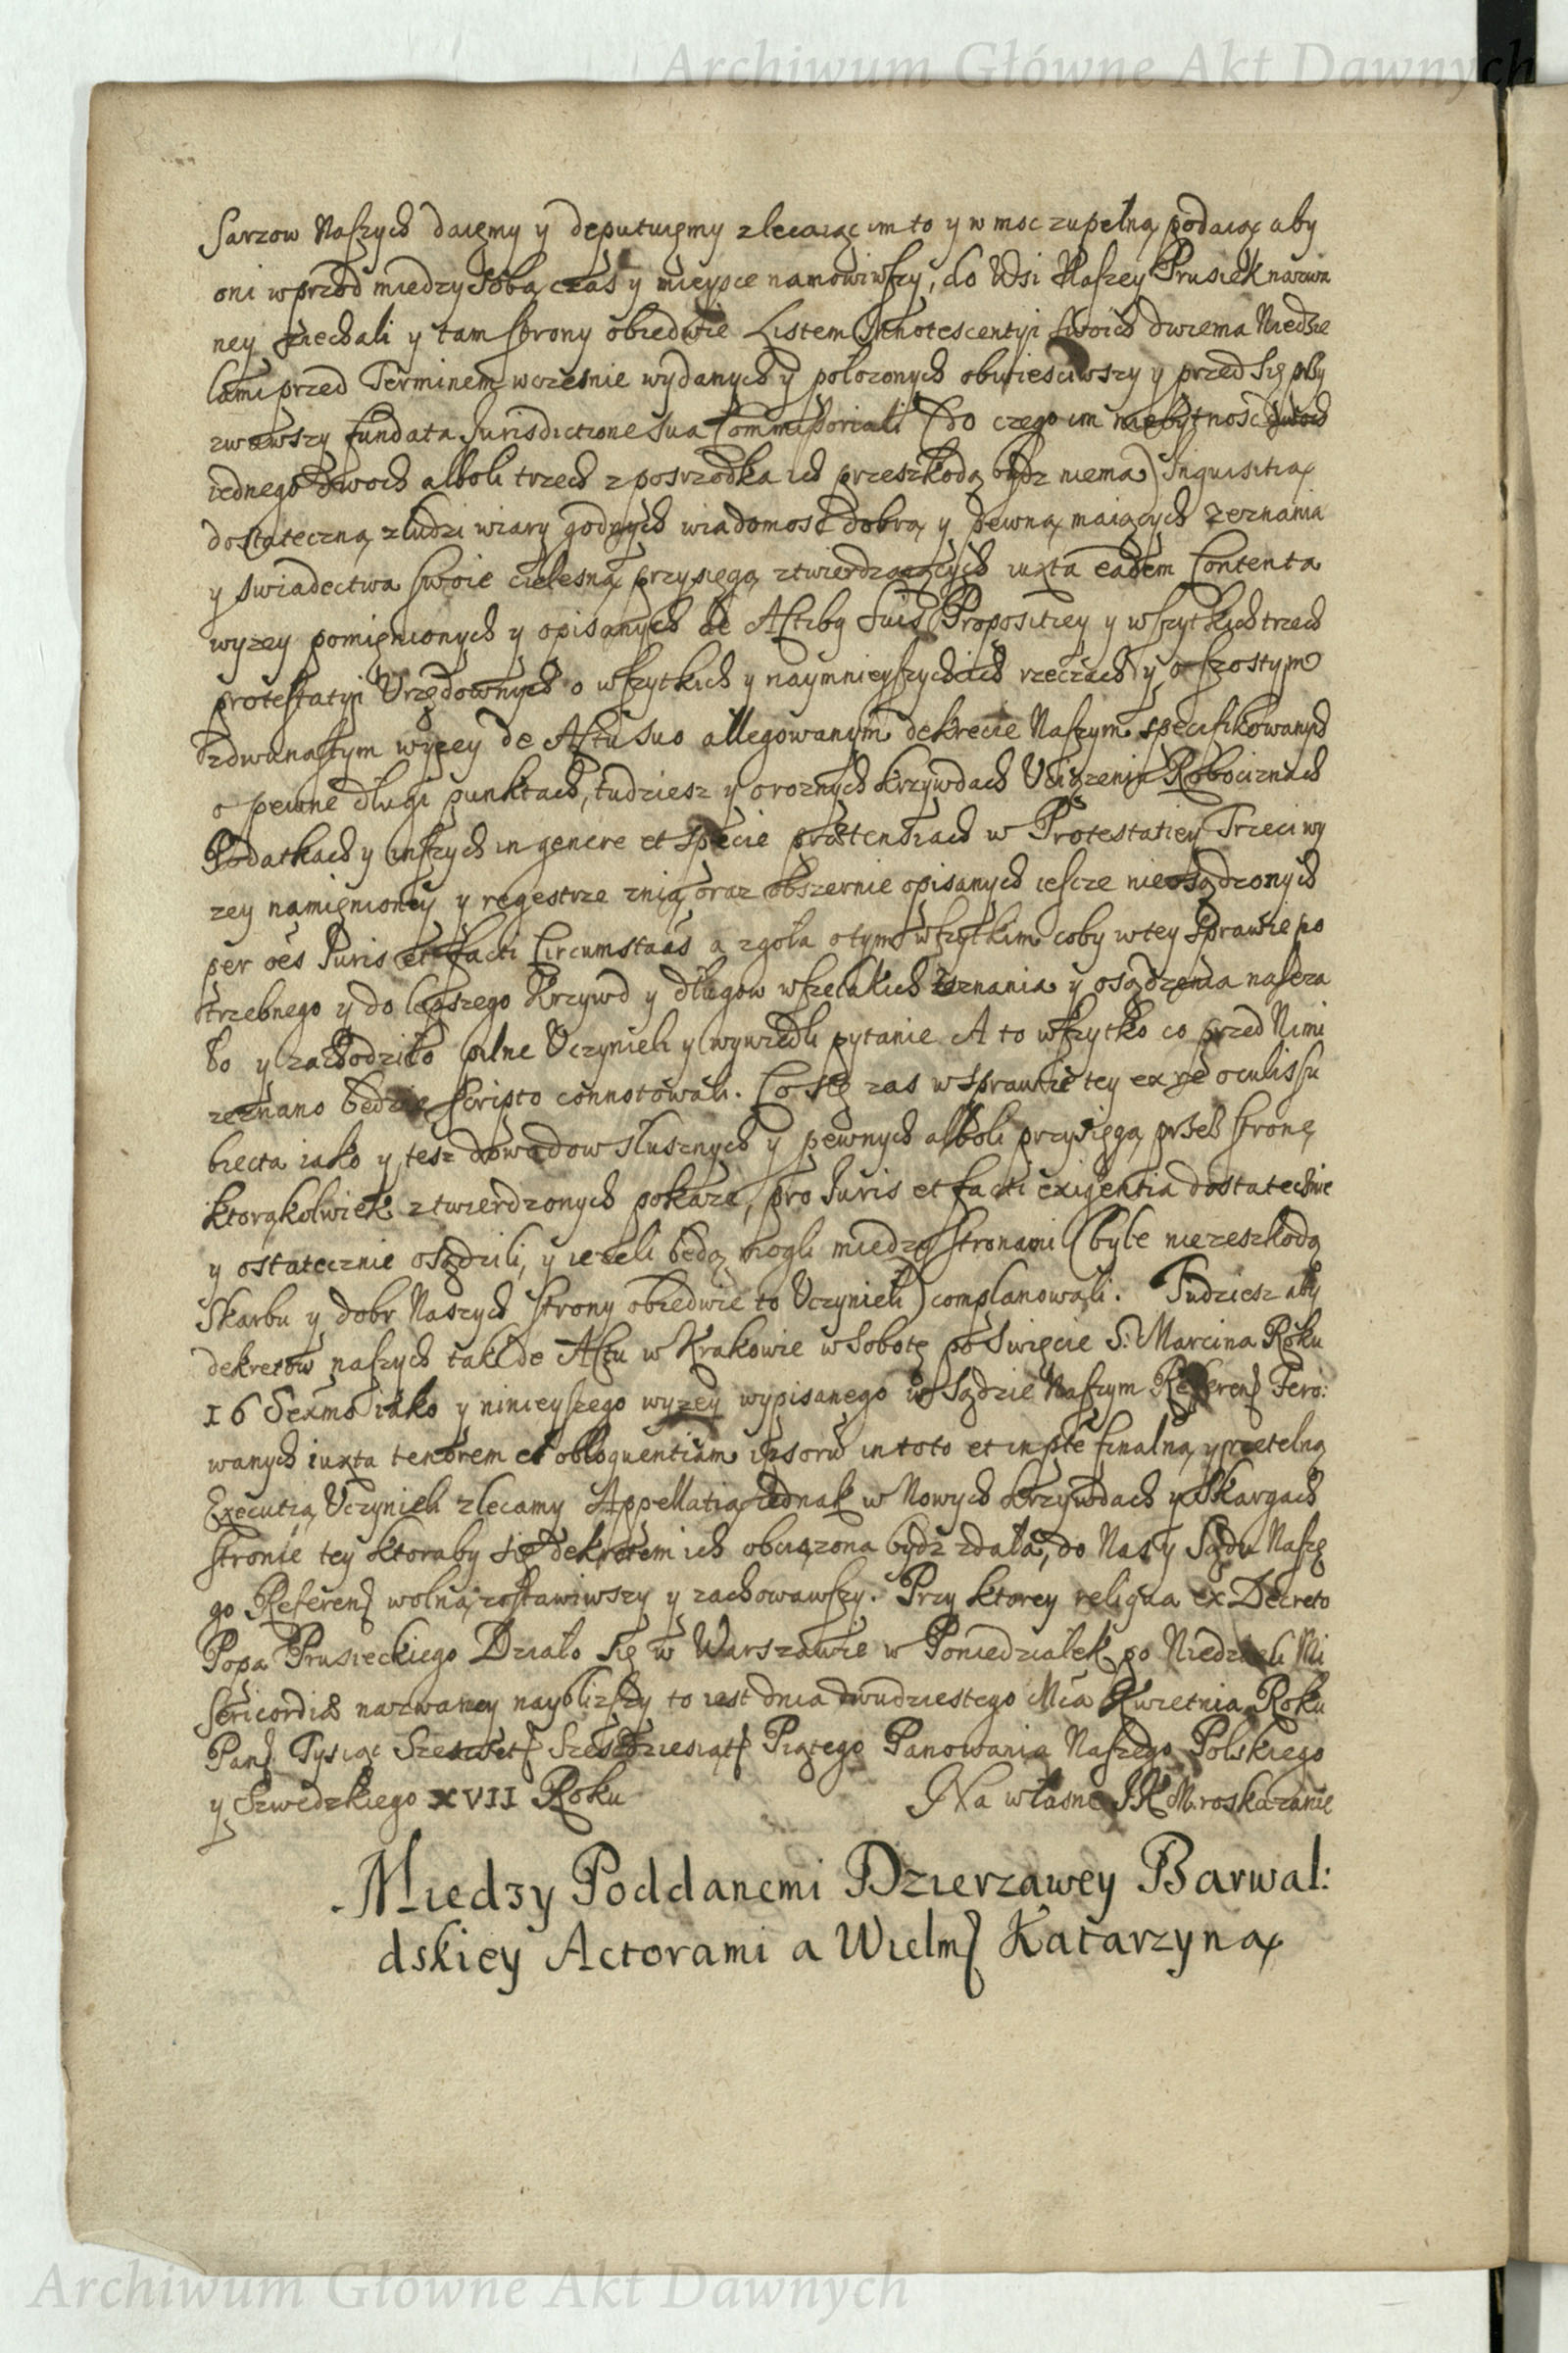 Archiwum Główne Akt Dawnych
Sarzow Naszych daięmy y deputuięmy zlecaiąc im to y w moc zupełną podaiąc aby
oni wprzod miedzy sobą czas y mieysce namowiwszy, do Wsi Naszey Prusiek nazwa
ney ziechali y tam strony obiedwie Listem Innotescentyi swoich dwiema Niedzie
lami przed Terminem wczesnie wydanych y położonych obwiesciwszy y przed się przy
zwawszy fundata Jurisdictione sua Commissoriali (Do czego im niebytność dwoch
iednego dwoch alboli trzech z posrzodka ich przeszkodą bydz niema) Inquisitią
dostateczną z ludzi wiary godnych wiadomosc dobrą y pewną maiących zeznania
y swiadectwa swoie cielesną przysięgą ztwierdzaiących iuxta eadem Contenta
wyzey pomięnionych y opisanych de Actibg suis Propositiey y wszytkich trzech
protestatyi Urzędownych o wszytkich y naymnieyszych ich rzeczach y o szostym
zdwunastym wyzey de Actu suo allegowanym dekrecie Naszym specifikowanych
o pewne długi punktach, tudziesz y o roznych Krzywdach Uciązeniu Robociznach
Podatkach y inszych in genere et specie prætensiach w Protestatiey Trzeci wy
zey namięnioney y regestrze znią oraz obszernie opisanych iescze nieosądzonych
per oes Juris et facti Circumstaas a zgoła o tym wszytkim coby w tey Sprawie po
trzebnego y do lepszego Krzywd y długow wszelakich zeznania y osądzenia naleza
ło y zachodziło pilne Uczynieli y wywiedli pytanie A to wszytko co przed Nimi
zeznano będzie scripto connotowali. Co się zas w sprawie tey ex re oculis su
biecta iako y tesz dowodow słusznych y pewnych alboli przysięgą przes stronę
ktorąkolwiek ztwierdzonych pokaze, pro Juris et facti exigentia dostatecznie
y ostatecznie osądzili, y iezeli będą mogli miedzy stronami (byle niezeszkodą
Skarbu y dobr Naszych strony obiedwie to Uczynieli) complanowali. Tudziesz aby
dekretow naszych tak de Actu w Krakowie w Sobotę po Swięcie S. Marcina Roku
iako y ninieyszego wyzey wypisanego w Sądzie Naszym Referens Fero:
wanych iuxta tenorem et obloquentiam ipsorum in toto et in pte finalną y rzetelną
Executią Uczynieli zlecamy Appellatią iednak w Nowych Krzywdach y Skargach
stronie tey ktoraby się dekretem ich obciązona bydz zdała, do Nas y Sądu Nasze
go Referens wolną zostawiwszy y zachowawszy. Przy ktorey reliqua ex Decreto
Popa Prusieckiego Działo się w Warszawie w Poniedziałek po Niedzieli Mi
sericordiæ nazwaney naybliższy to iest dnia dwudziestego Mca Kwietnia Roku
Pans Tysiąc Szescset Szescdziesiąt Piątego Panowania Naszego Polskiego
y Szwedzkiego XVII Roku Na własne JK M. roskazanie
Miedzy Poddanemi Dzierzawey Barwał:
dskiey Actorami a Wielm Katarzyną
Archiwum Główne Akt Dawnych